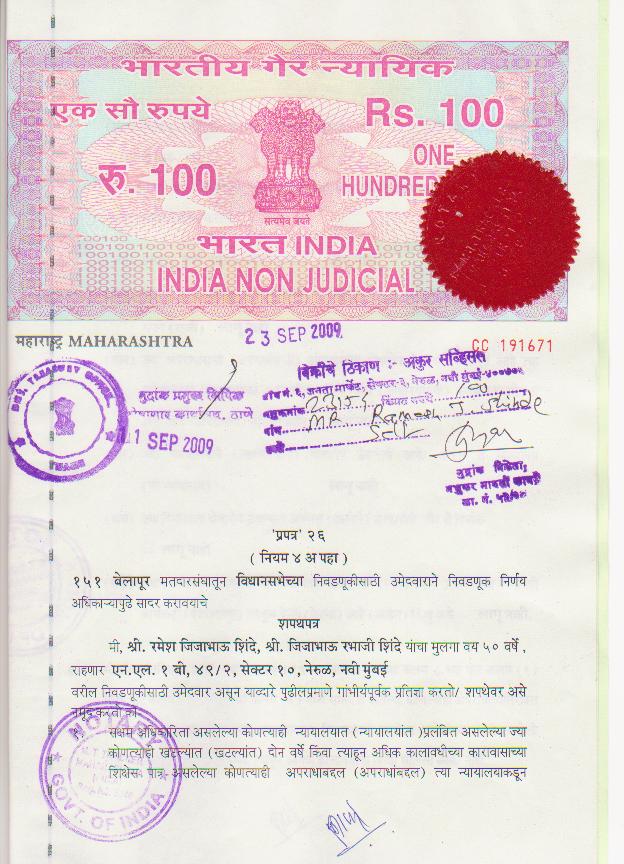 भारतीय गैर न्यायिक
एक सौ रुपये
Rs. 100
रु. 100
ONE
HUNDRED
सत्यमेव जयते
भारत INDIA
INDIA NON JUDICIAL
महाराष्ट्र MAHARASHTRA
23 SEP 2009
CC 191671
विक्रीचे ठिकाण :- अंकुर सर्व्हिसेस
जनता मार्केट, सेक्टर-२, नेरुळ, नवी मुंबई-
मुद्रांक प्रमुख लिपिक
कोषागार कार्यालय, ठाणे
1 SEP 2009
100
MR Ramesh J. Shinde
Self
मुद्रांक विक्रेता,
'प्रपत्र' २६
( नियम ४ अ पहा )
१५१ बेलापूर मतदारसंघातून विधानसभेच्या निवडणूकीसाठी उमेदवाराने निवडणूक निर्णय
अधिकाऱ्यापुढे सादर करावयाचे
शपथपत्र
मी, श्री. रमेश जिजाभाऊ शिंदे, श्री. जिजाभाऊ रभाजी शिंदे यांचा मुलगा वय ५० वर्षे ,
राहणार एन.एल. १ बी, ४९/२, सेक्टर १०, नेरुळ, नवी मुंबई
वरील निवडणूकीसाठी उमेदवार असून याव्दारे पुढीलप्रमाणे गांभीर्यपूर्वक प्रतिज्ञा करतो/ शपथेवर असे
नमूद करतो की
१) सक्षम अधिकारिता असलेल्या कोणत्याही न्यायालयात (न्यायालयांत )प्रलंबित असलेल्या ज्या
कोणत्याही खटल्यात (खटल्यांत) दोन वर्षे किंवा त्याहून अधिक कालावधीच्या कारावासाच्या
शिक्षेस पात्र असलेल्या कोणत्याही अपराधाबद्दल (अपराधांबद्दल) त्या न्यायालयाकडून
NOTARY
GOVT. OF INDIA